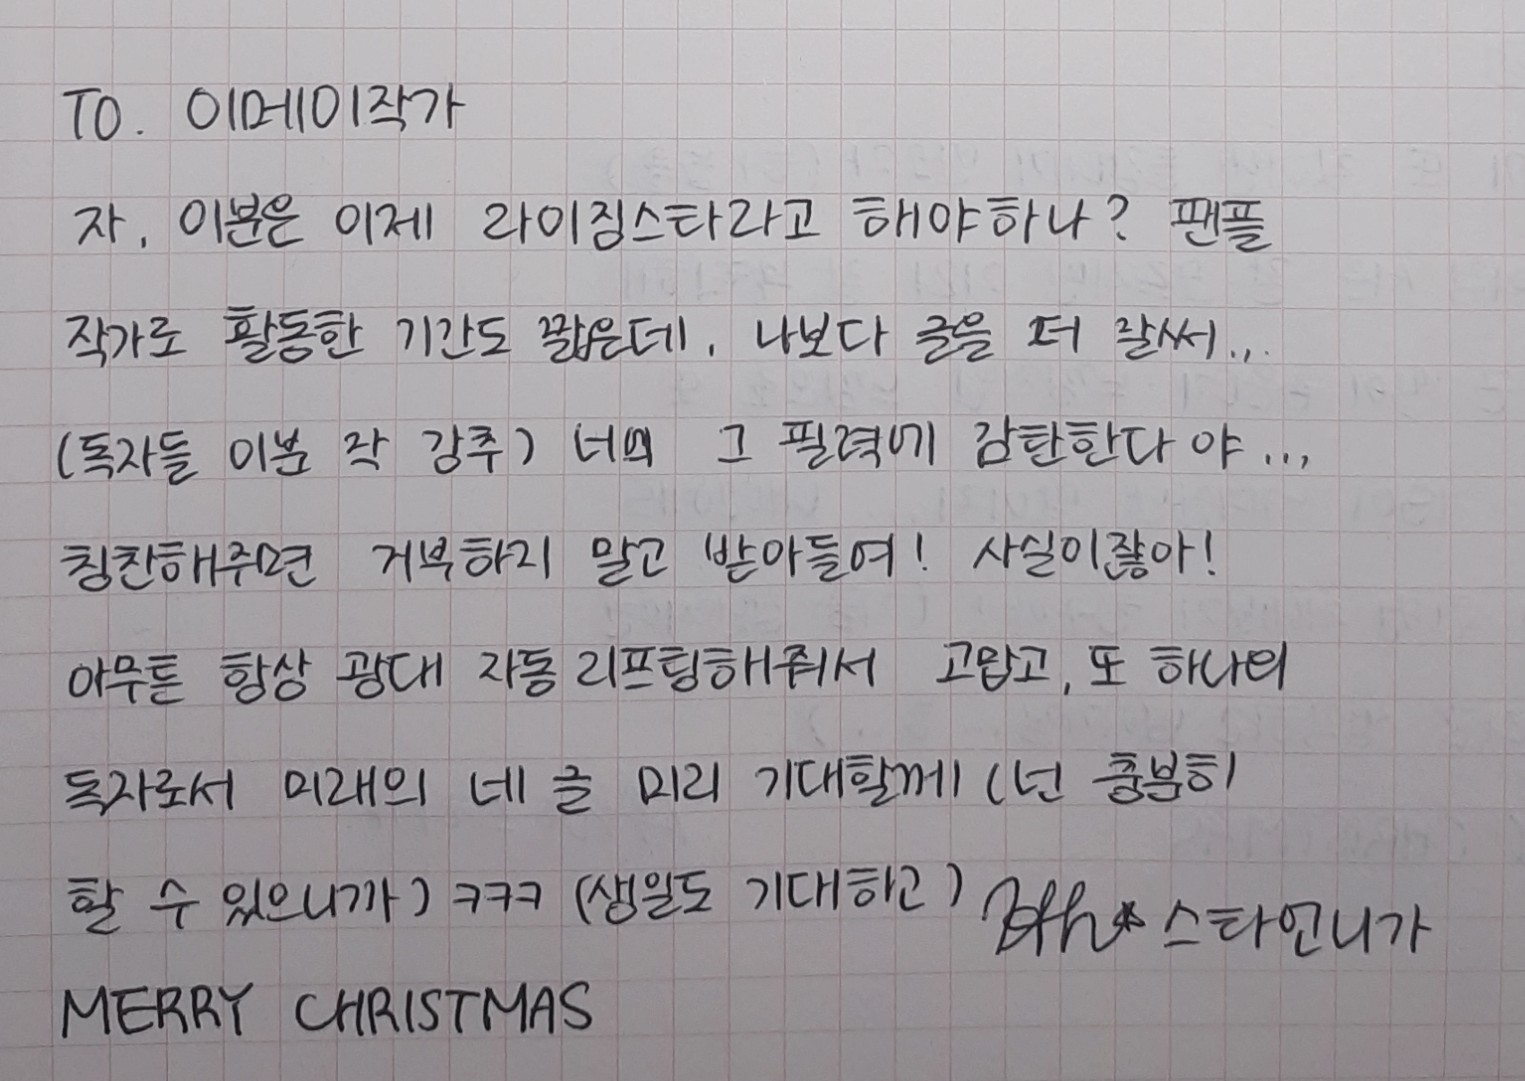 TO. 이메이작가
자, 이분은 이제 라이징스타라고 해야하나? 팬플
작가로 활동한 기간도 짧은데, 나보다 글을 더 잘써...
(독자들 이분 작 강추) 너의 그 필력에 감탄한다 야...
칭찬해주면 거부하지 말고 받아들여! 사실이잖아!
아무튼 항상 광대 자동리프팅해줘서 고맙고, 또 하나의
독자로서 미래의 네 글 미리 기대할께 (넌 충분히
할 수 있으니까) ㅋㅋㅋ (생일도 기대하고) 스타언니가
MERRY CHRISTMAS